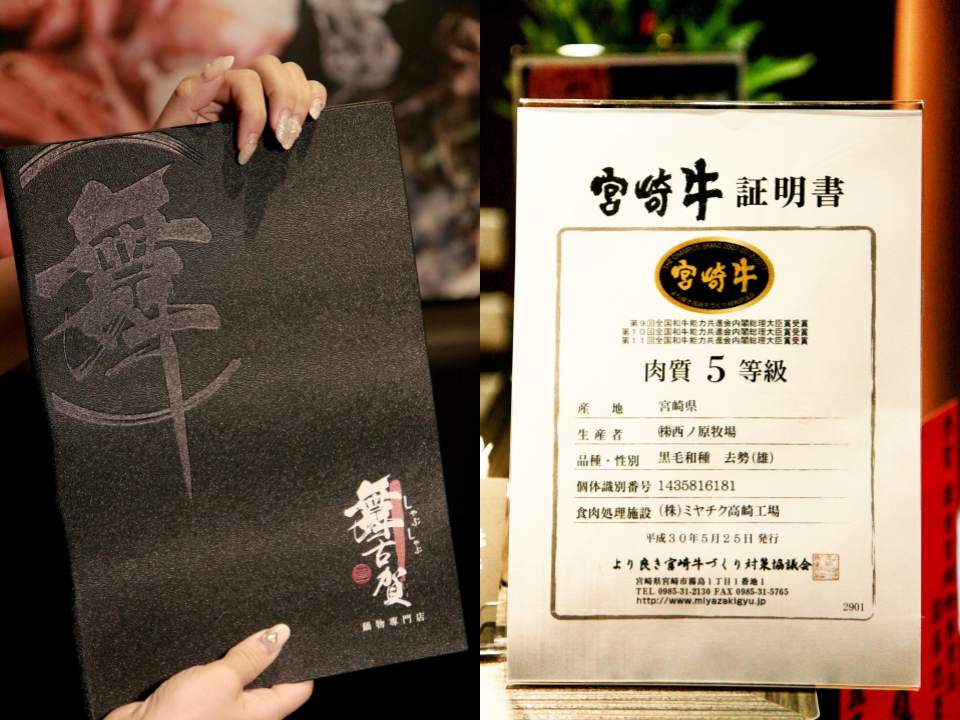 舞
舞古賀
しゃぶしゃぶ
鍋物專門店
宮崎牛 証明書
宮崎牛
第9回全国和牛能力共進会内閣総理大臣賞受賞
第10回全国和牛能力共進会内閣総理大臣賞受賞
第11回全国和牛能力共進会内閣総理大臣賞受賞
肉質 5 等級
産 地 宮崎県
生産者 ㈱西ノ原牧場
品種・性別 黒毛和種 去勢(雄)
個体識別番号 1435816181
食肉処理施設 (株)ミヤチク高崎工場
平成30年5月25日 発行
より良き宮崎牛づくり対策協議会
宮崎県宮崎市霧島1丁目1番地1
TEL 0985-31-2130 FAX 0985-31-5765
http://www.miyazakigyu.jp
2901